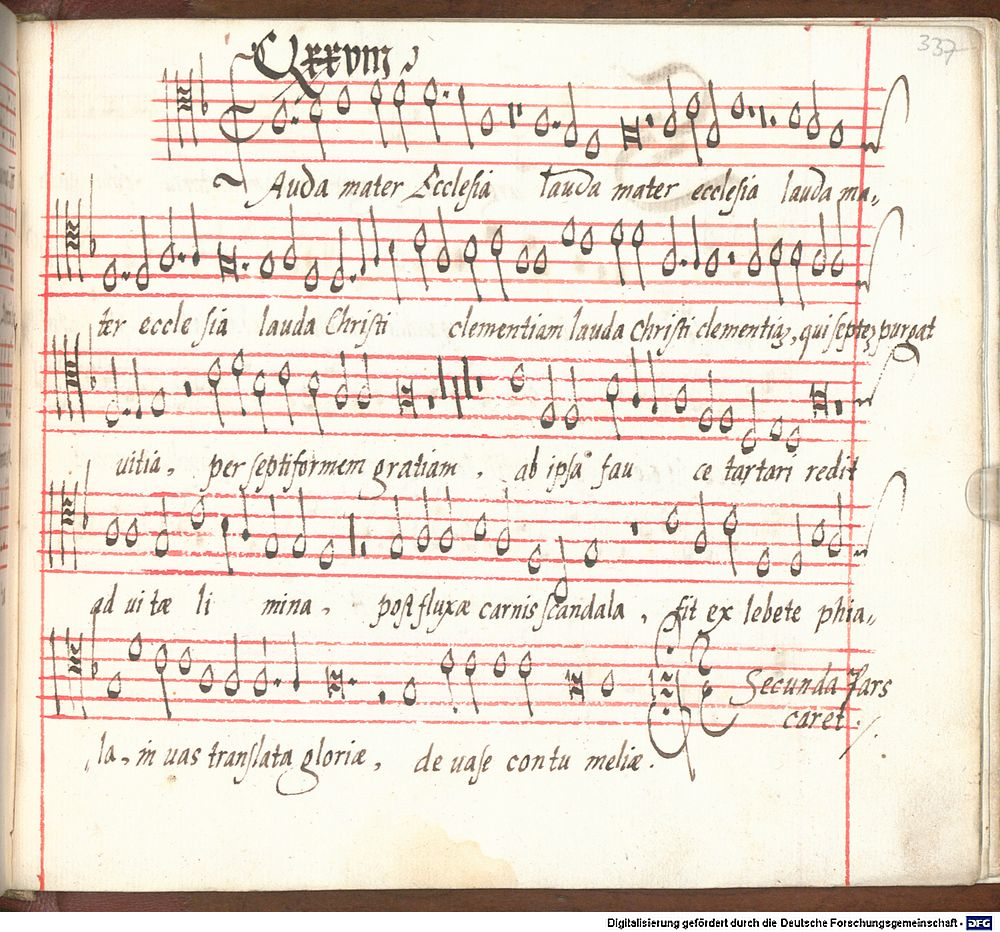 CXXVIII
337
Lauda mater Ecclesia lauda mater ecclesia lauda ma„
ter eccle sia lauda Christi clementiam lauda Christi clementiaʒ, qui septeʒ purgat
uitia, per septiformem gratiam, ab ipsa fau ce tartari redit
ad ui tæ li mina, post fluxæ carnis scandala, fit ex lebete phia„
la, in uas translata gloriæ, de uase contu meliæ.
Secunda Pars
caret.
Digitalisierung gefördert durch die Deutsche Forschungsgemeinschaft - DFG